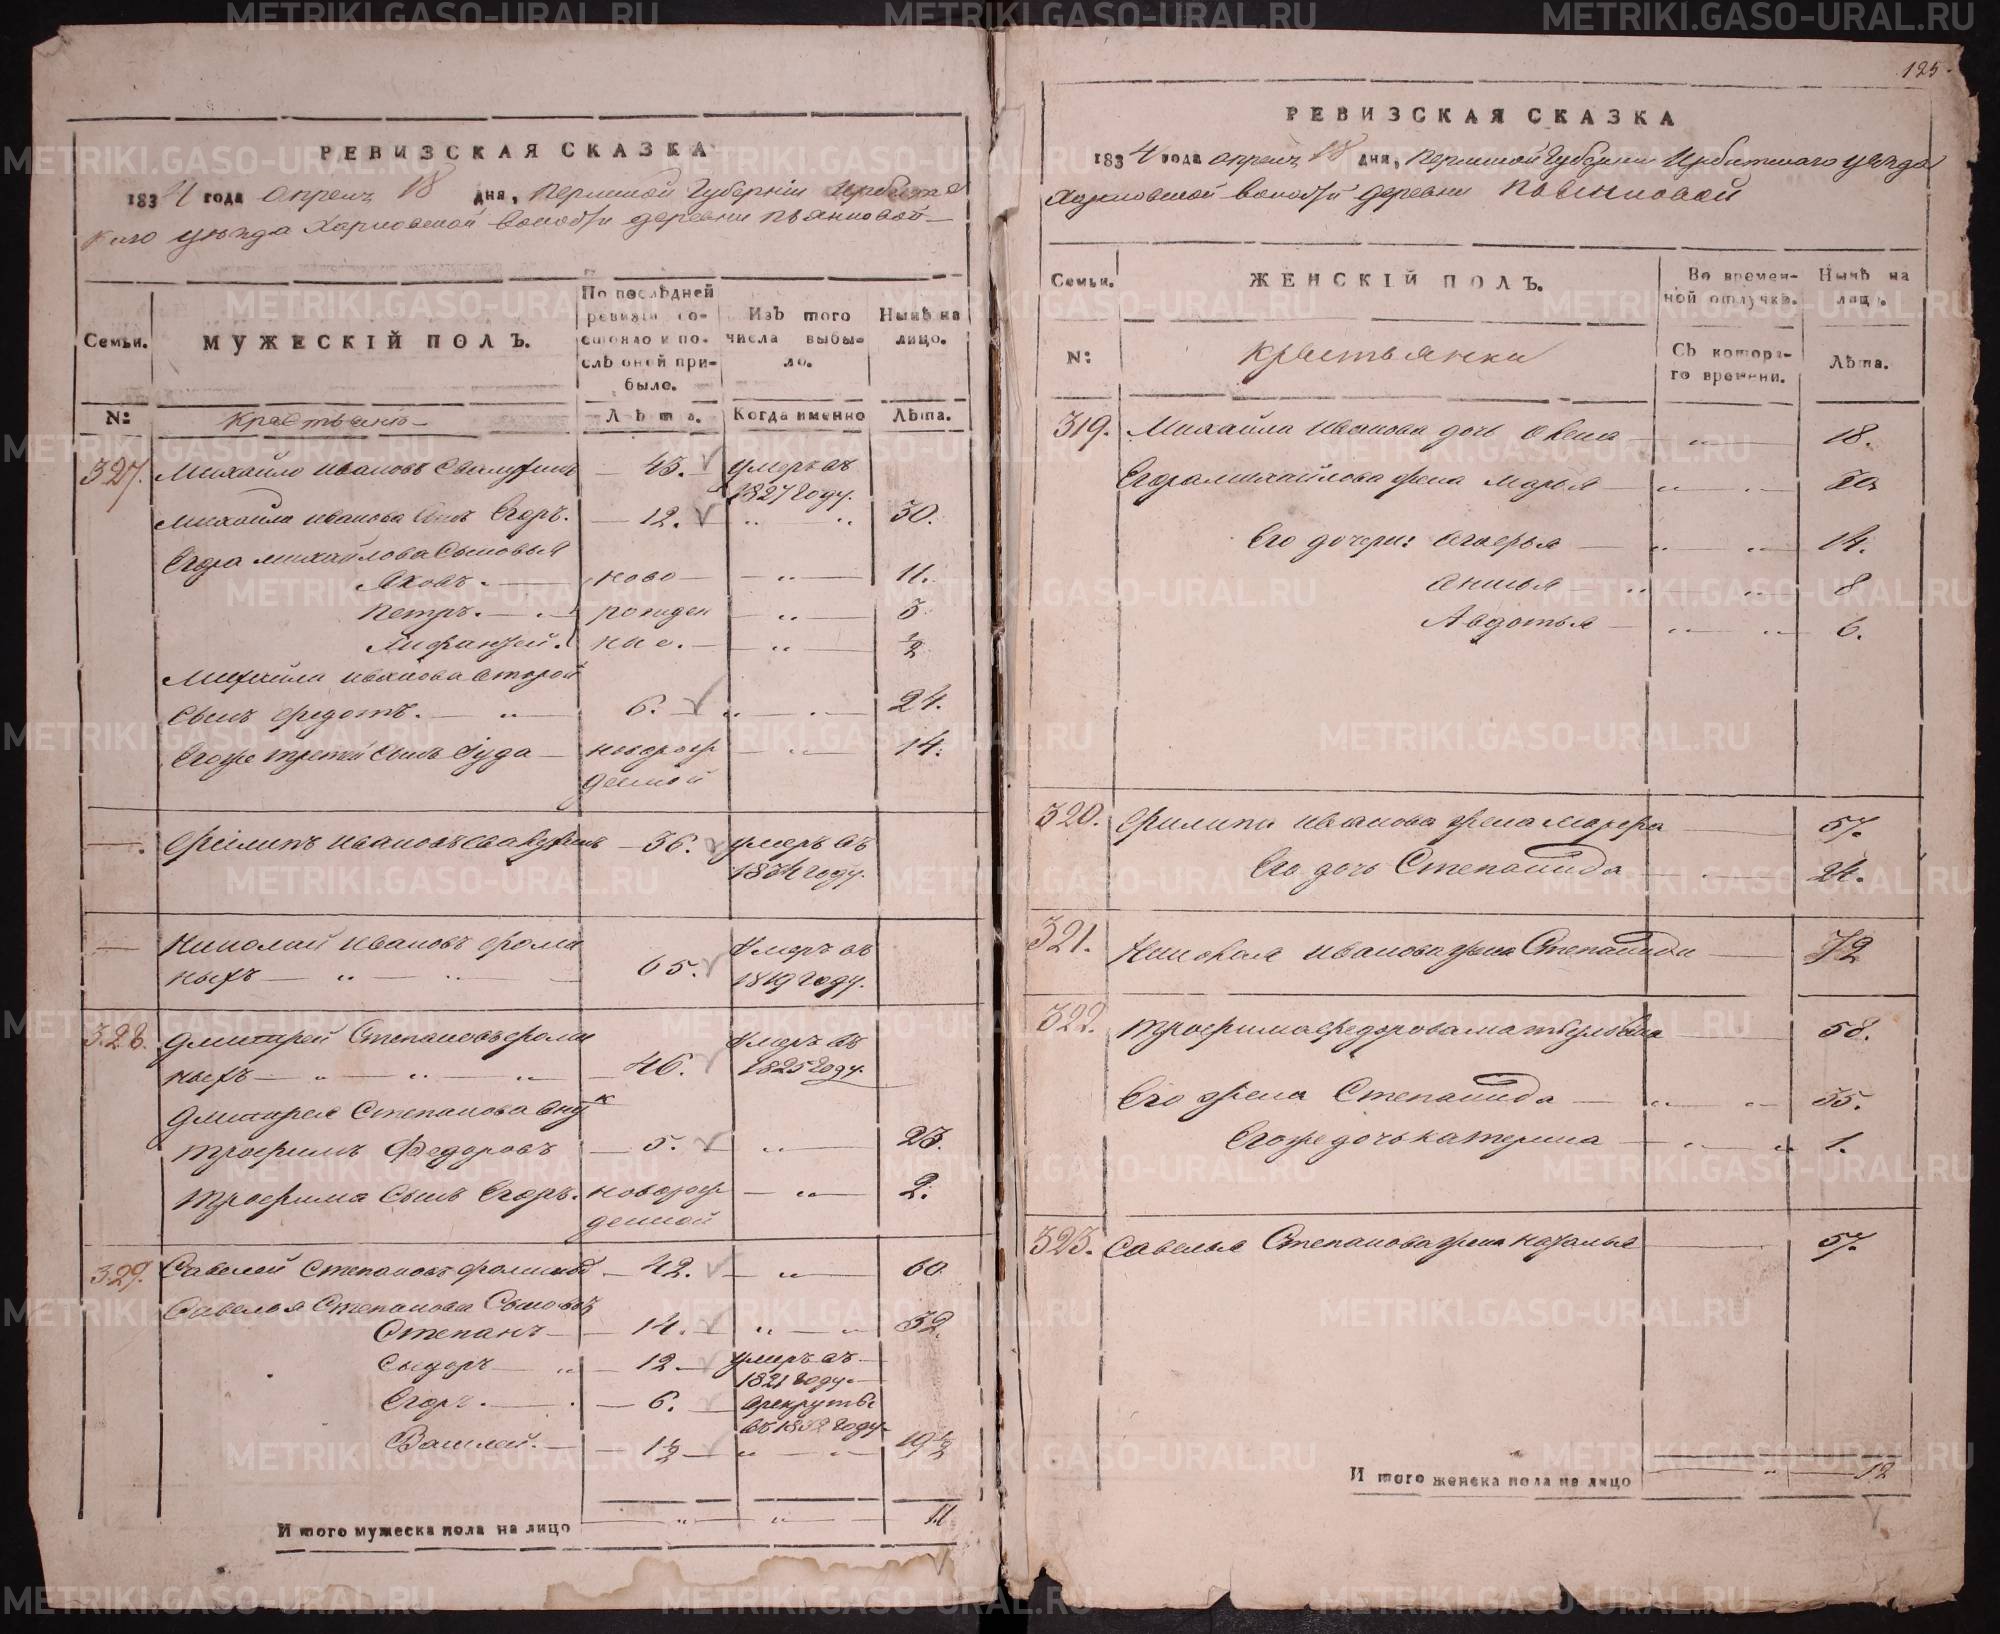 РЕВИЗСКАЯ СКАЗКА
1834 года апреля 18 дня, Пермской Губернiи Ирбитс
каго уезда Харловской волости деревни Пьянковой
Семьи.
МУЖЕСКIЙ ПОЛЪ.
По послѣдней ревизiи состояло и послѣ оной прибыло.
Изъ того числа выбыло.
Нынѣ на лицо.
N:
Крестьяне
Лѣта.
Когда именно
Лѣта.
327. Михайло Ивановъ 43. умеръ въ
1827 году.
Михайла Иванова сынъ Егоръ. 12. 30.
Егора Михайлова сыновья
Яковъ. ново 11.
Петръ. рожден 3
ные. 1/2
Михайла Иванова второй
сынъ Федотъ. 6. 24.
Егоже третей сынъ Iуда новорож 14.
денной
Филипъ Ивановъ 36. умеръ въ
1834 году.
Николай Ивановъ Фоми
ныхъ 65. Умеръ въ
1819 году.
328. Дмитрей Степановъ Фоми
ныхъ 46. Умеръ въ
1825 году.
Дмитрея Степанова внук
Трофимъ Федоровъ 5. 23.
Трофима сынъ Егоръ. новорож 2.
денной
329. Савелей Степановъ 42. 60
Савелья Степанова сыновья
Степанъ 14. 32.
Сыдоръ 12 умеръ въ
1821 году
Егоръ. 6. врекруты
въ 1832 году
Василей. 1 1/2 19 1/2
И того мужеска пола на лицо 11
125.
РЕВИЗСКАЯ СКАЗКА
1834 года апреля 18 дня, Пермской Губернии Ирбитскаго уезда
Харловской волости деревни Пьянковой
Семьи.
ЖЕНСКIЙ ПОЛЪ.
Во временной отлучкѣ.
Нынѣ на лицо.
N:
Крестьянки
Съ котораго времени.
Лѣта.
319. Михайла Иванова дочь 18.
Егора Михайлова жена Марья
Его дочери: 14.
Анисья 8
Авдотья 6.
320. Филипа Иванова жена 57.
Его дочь Степанида 24.
321. Николая Иванова жена Степанида 72
322. Трофима Федорова мать 58.
Его жена Степанида
Егоже дочь Катерина 1.
323. Савелья Степанова жена Наталья 57.
И того женска пола на лицо 12
METRIKI.GASO-URAL.RU